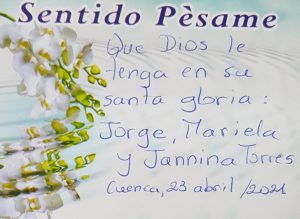 Sentido Pèsame
Que Dios le
tenga en su
santa gloria:
Jorge, Mariela
y Jannina Torres
Cuenca, 23 abril /2021